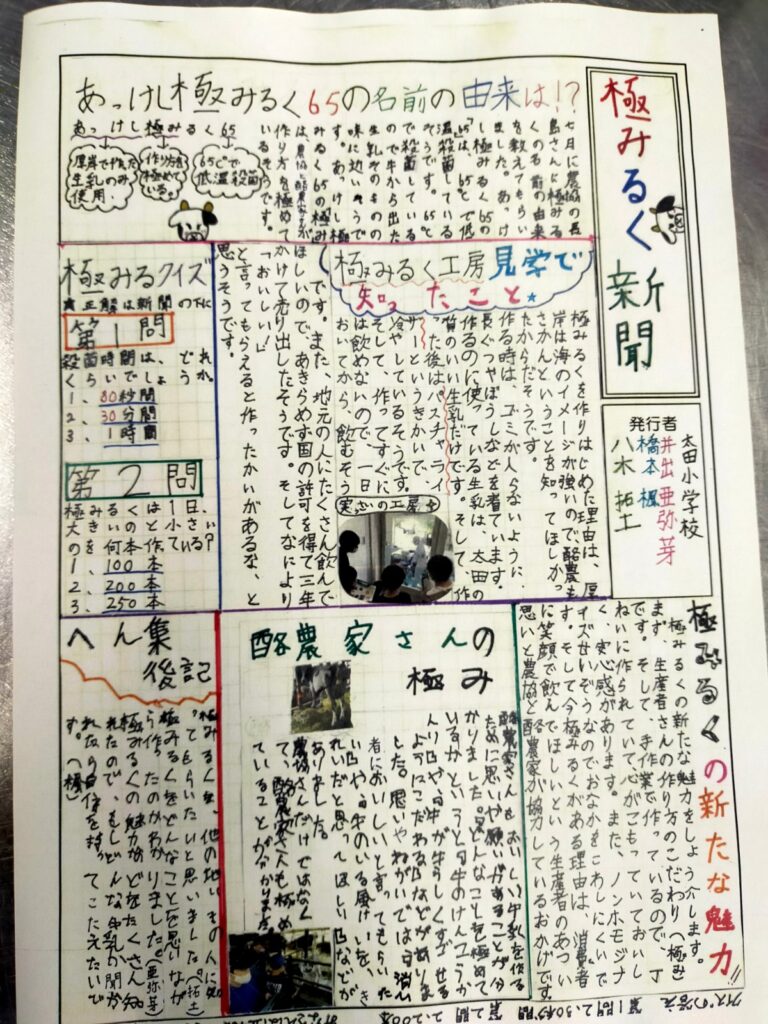 極みるく新聞
発行者
太田小学校
井出 亜弥芽
橋本 楓
八木 拓土
あっけし極みるく65の名前の由来は!?
七月に農協の長
島さんに極みる
くの名前の由来
を教えてもらい
ました。あっけ
し極みるく65の
「65」は、65℃で低
温殺菌している
そうです。65℃
で殺菌している
ので牛から出た
生乳そのものの
味に近いそうで
す。あっけし極
みるく65の極み
は、農協と酪農家さんが
作り方を極めて
いるそうです。
あっけし極みるく65
厚岸で作った
生乳のみ
使用。
作り方を
極めて
いる。
65℃で
低温殺菌
極みるく工房見学で
知ったこと☆
極みるくを作りはじめた理由は、厚
岸は海のイメージが強いので酪農も
さかんということを知ってほしかっ
たからだそうです。
作る時は、ゴミが入らないように、
長ぐつやぼうしなどを着ています。
作るのに使っている生乳は、太田の
質のいい生乳だけです。そして、作
った後はパスチャライ
ザーというきかいで、
冷やしているそうです。
そして、作ってすぐに
は飲めないので、一日
おいてから、飲むそう
です。また、地元の人にたくさん飲んで
ほしいので、あきらめず国の許可を得て三年
かけて売り出したそうです。そしてなにより
「おいしい!」
と言ってもらえると作ったかいがあるな、と
思うそうです。
実さいの工房→
極みるクイズ
正解は新聞の下に
第1問
殺菌時間は、どれ
くらいでしょうか。
1、30秒間
2、30分間
3、1時間
第2問
極みるくは1日、
大きいのと小さい
のを何本作っている?
1、100本
2、200本
3、250本
極みるくの新たな魅力!!
極みるくの新たな魅力をしょう介します。
まず、生産者さんの作り方のこだわり(極み)
です。そして、手作業で作っているので、丁
ねいに作られていて心がこもっていておいし
く、安心感があります。また、ノンホモジナ
イズせいぞうなのでおなかをこわしにくいで
す。そして今極みるくがある理由は、消費者
に笑顔で飲んでほしいという生産者のあつい
思いと農協と酪農家が協力しているおかげです。
酪農家さんの
極み
酪農家さんもおいしい牛乳を作る
ために思いや願いがあることが分
かりました。どんなことを極めて
いるかというと牛のけんこうか
んりや、牛が牛らしくすごせる
ようにこだわるなどがありま
した。思いやねがいでは、消ひ
者においしいと言ってもらいた
い
れいだと思ってほしいなどが
ありました。
農協さんだけではなく
て、酪農家さんも極め
ていることが分かりました。
へん集
後記
極みるくを、他の地いきの人に知
ってもらいたいと思いました。(拓土)
極みるくをどんなことを思いなが
ら作ったのかわかりました。(亜弥芽)
極みるくの魅力などをたくさん知
れたので、もしどんな牛乳か聞か
れたら自信を持ってこたえたいで
す。(楓)
クイズの答え
第1問2、30分間
第2問2、200本